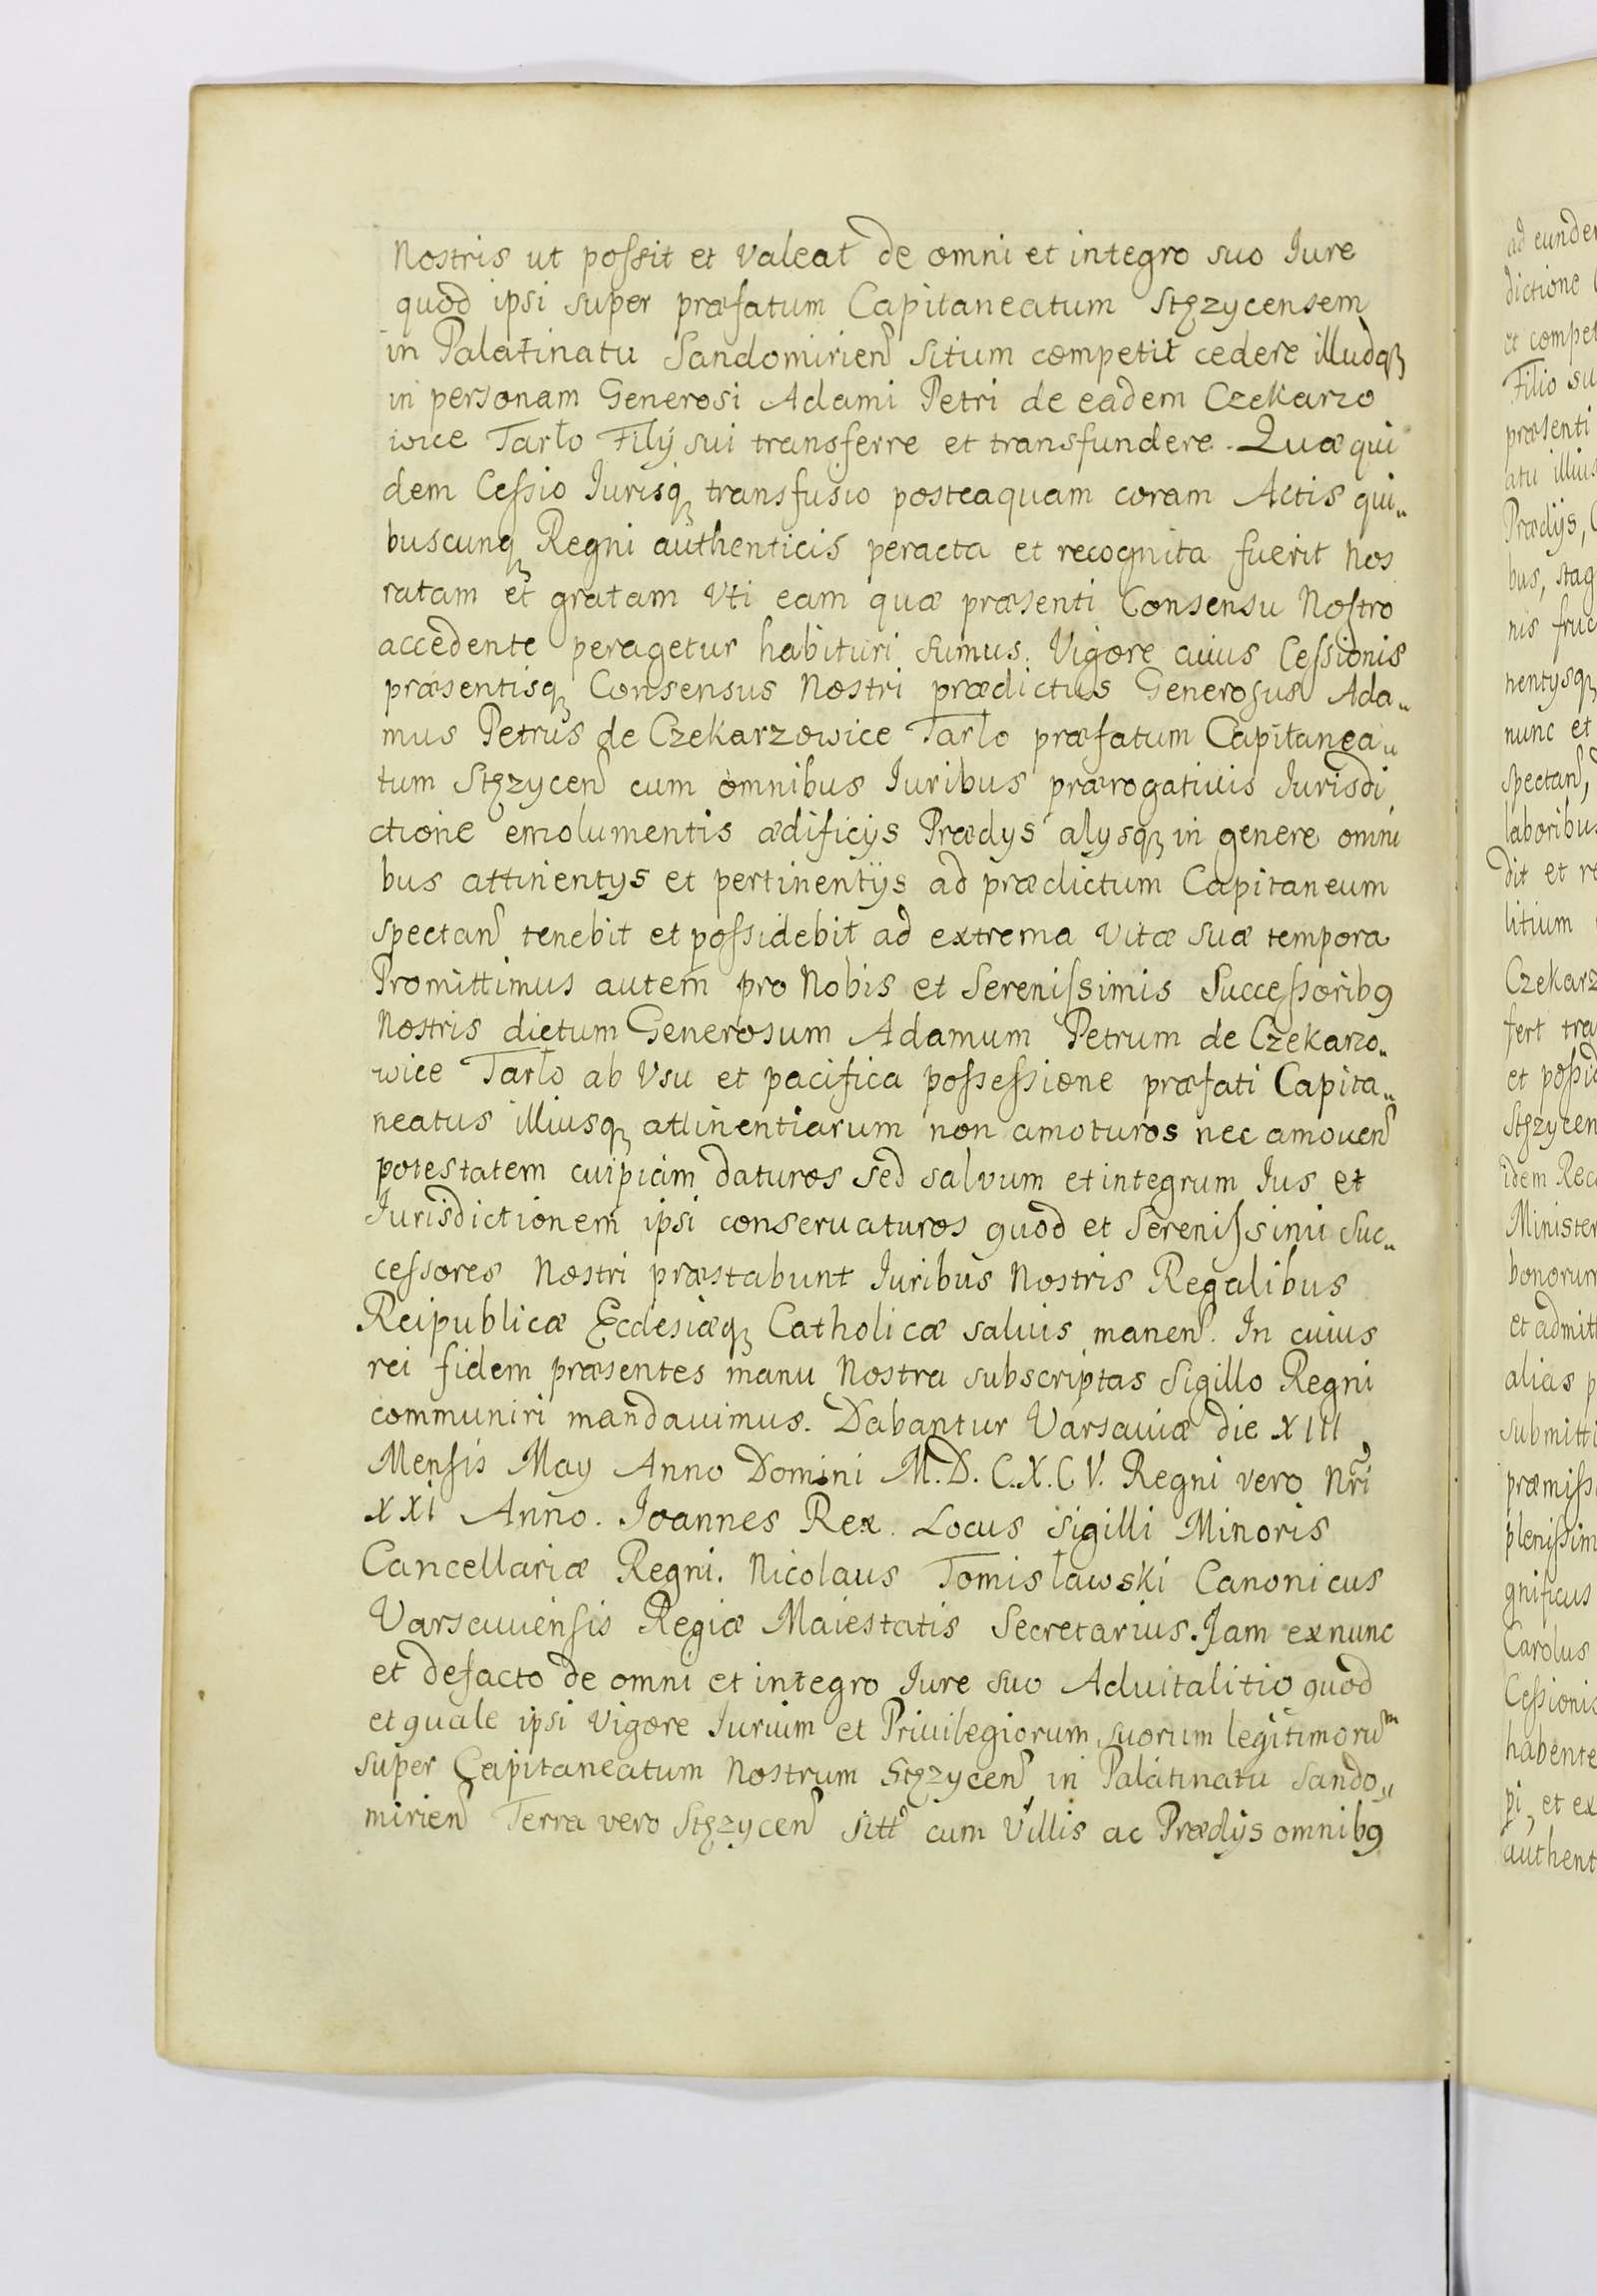 Nostris ut possit et Valeat de omni et integro suo Iure
quod ipsi super præfatum Capitaneatum Stęzycensem
in Palatinatu Sandomirien̄ Situm competit cedere illudqꝫ
in personam Generosi Adami Petri de eadem Czekarzo
wice Tarło Filÿ sui transferre et transfundere. Quæ qui
dem Cessio Iurisqꝫ transfusio posteaquam coram Actis qui„
buscunqꝫ Regni authenticis peracta et recognita fuerit Nos
ratam et gratam Vti eam quæ præsenti Consensu Nostro
accedente peragetur habituri sumus. Vigore cuius Cessionis
præsentisqꝫ Consensus Nostri prædictus Generosus Ada„
mus Petrus de Czekarzowice Tarło præfatum Capitanea„
tum Stęzycen̄ cum omnibus Iuribus prærogatiuis Iurisdi
ctione emolumentis ædificÿs Prædys alysqꝫ in genere omni
bus attinentys et pertinentÿs ad prædictum Capitaneum
spectan̄ tenebit et possidebit ad extrema Vitæ suæ tempora
Promittimus autem pro Nobis et Serenissimis Successorib9
Nostris dictum Generosum Adamum Petrum de Czekarzo„
wice Tarło ab Vsu et pacifica possessione præfati Capita„
neatus illiusqꝫ attinentiarum non amoturos nec amouen̄
potestatem cuipiam daturos sed salvum et integrum Ius et
Iurisdictionem ipsi conseruaturos quod et Serenissimi Suc„
cessores Nostri præstabunt Iuribus Nostris Regalibus
Reipublicæ Ecclesiæqꝫ Catholicæ saluis manen̄. In cuius
rei fidem præsentes manu Nostra subscriptas Sigillo Regni
communiri mandauimus. Dabantur Varsauiæ die XIII
Mensis May Anno Domini M.D.C.X.C V. Regni vero Nr̄i
XXI Anno. Joannes Rex. Locus Sigilli Minoris
Cancellariæ Regni. Nicolaus Tomisławski Canonicus
Varsauiensis Regiæ Maiestatis Secretarius. Jam ex nunc
et defacto de omni et integro Iure suo Aduitalitio quod
et quale ipsi Vigore Iurium et Priuilegiorum suorum legitimorūm
super Capitaneatum Nostrum Stęzycen̄ in Palatinatu Sando„
mirien̄ Terra vero Stęzycen̄ Sitt̄ cum Villis ac Prædÿs omnib9
ad eunde
dictione
et compet
Filio su
præsenti
atu illius
Prædÿs,
bus, stag
nis fruc
nentysqꝫ
nunc et
spectan̄,
laboribus
dit et re
litium
Czekarz
fert tra
et possid
Stęzycen
idem Rec
Minister
bonorum
et admitt
alias p
submitti
præmiss
plenissim
gnificus
Carolus
Cessionis
habente
pi, et ex
authent